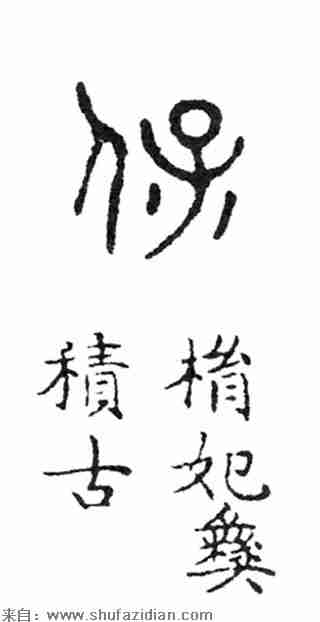 保
妃彝
積古
来自：www.shufazidian.com